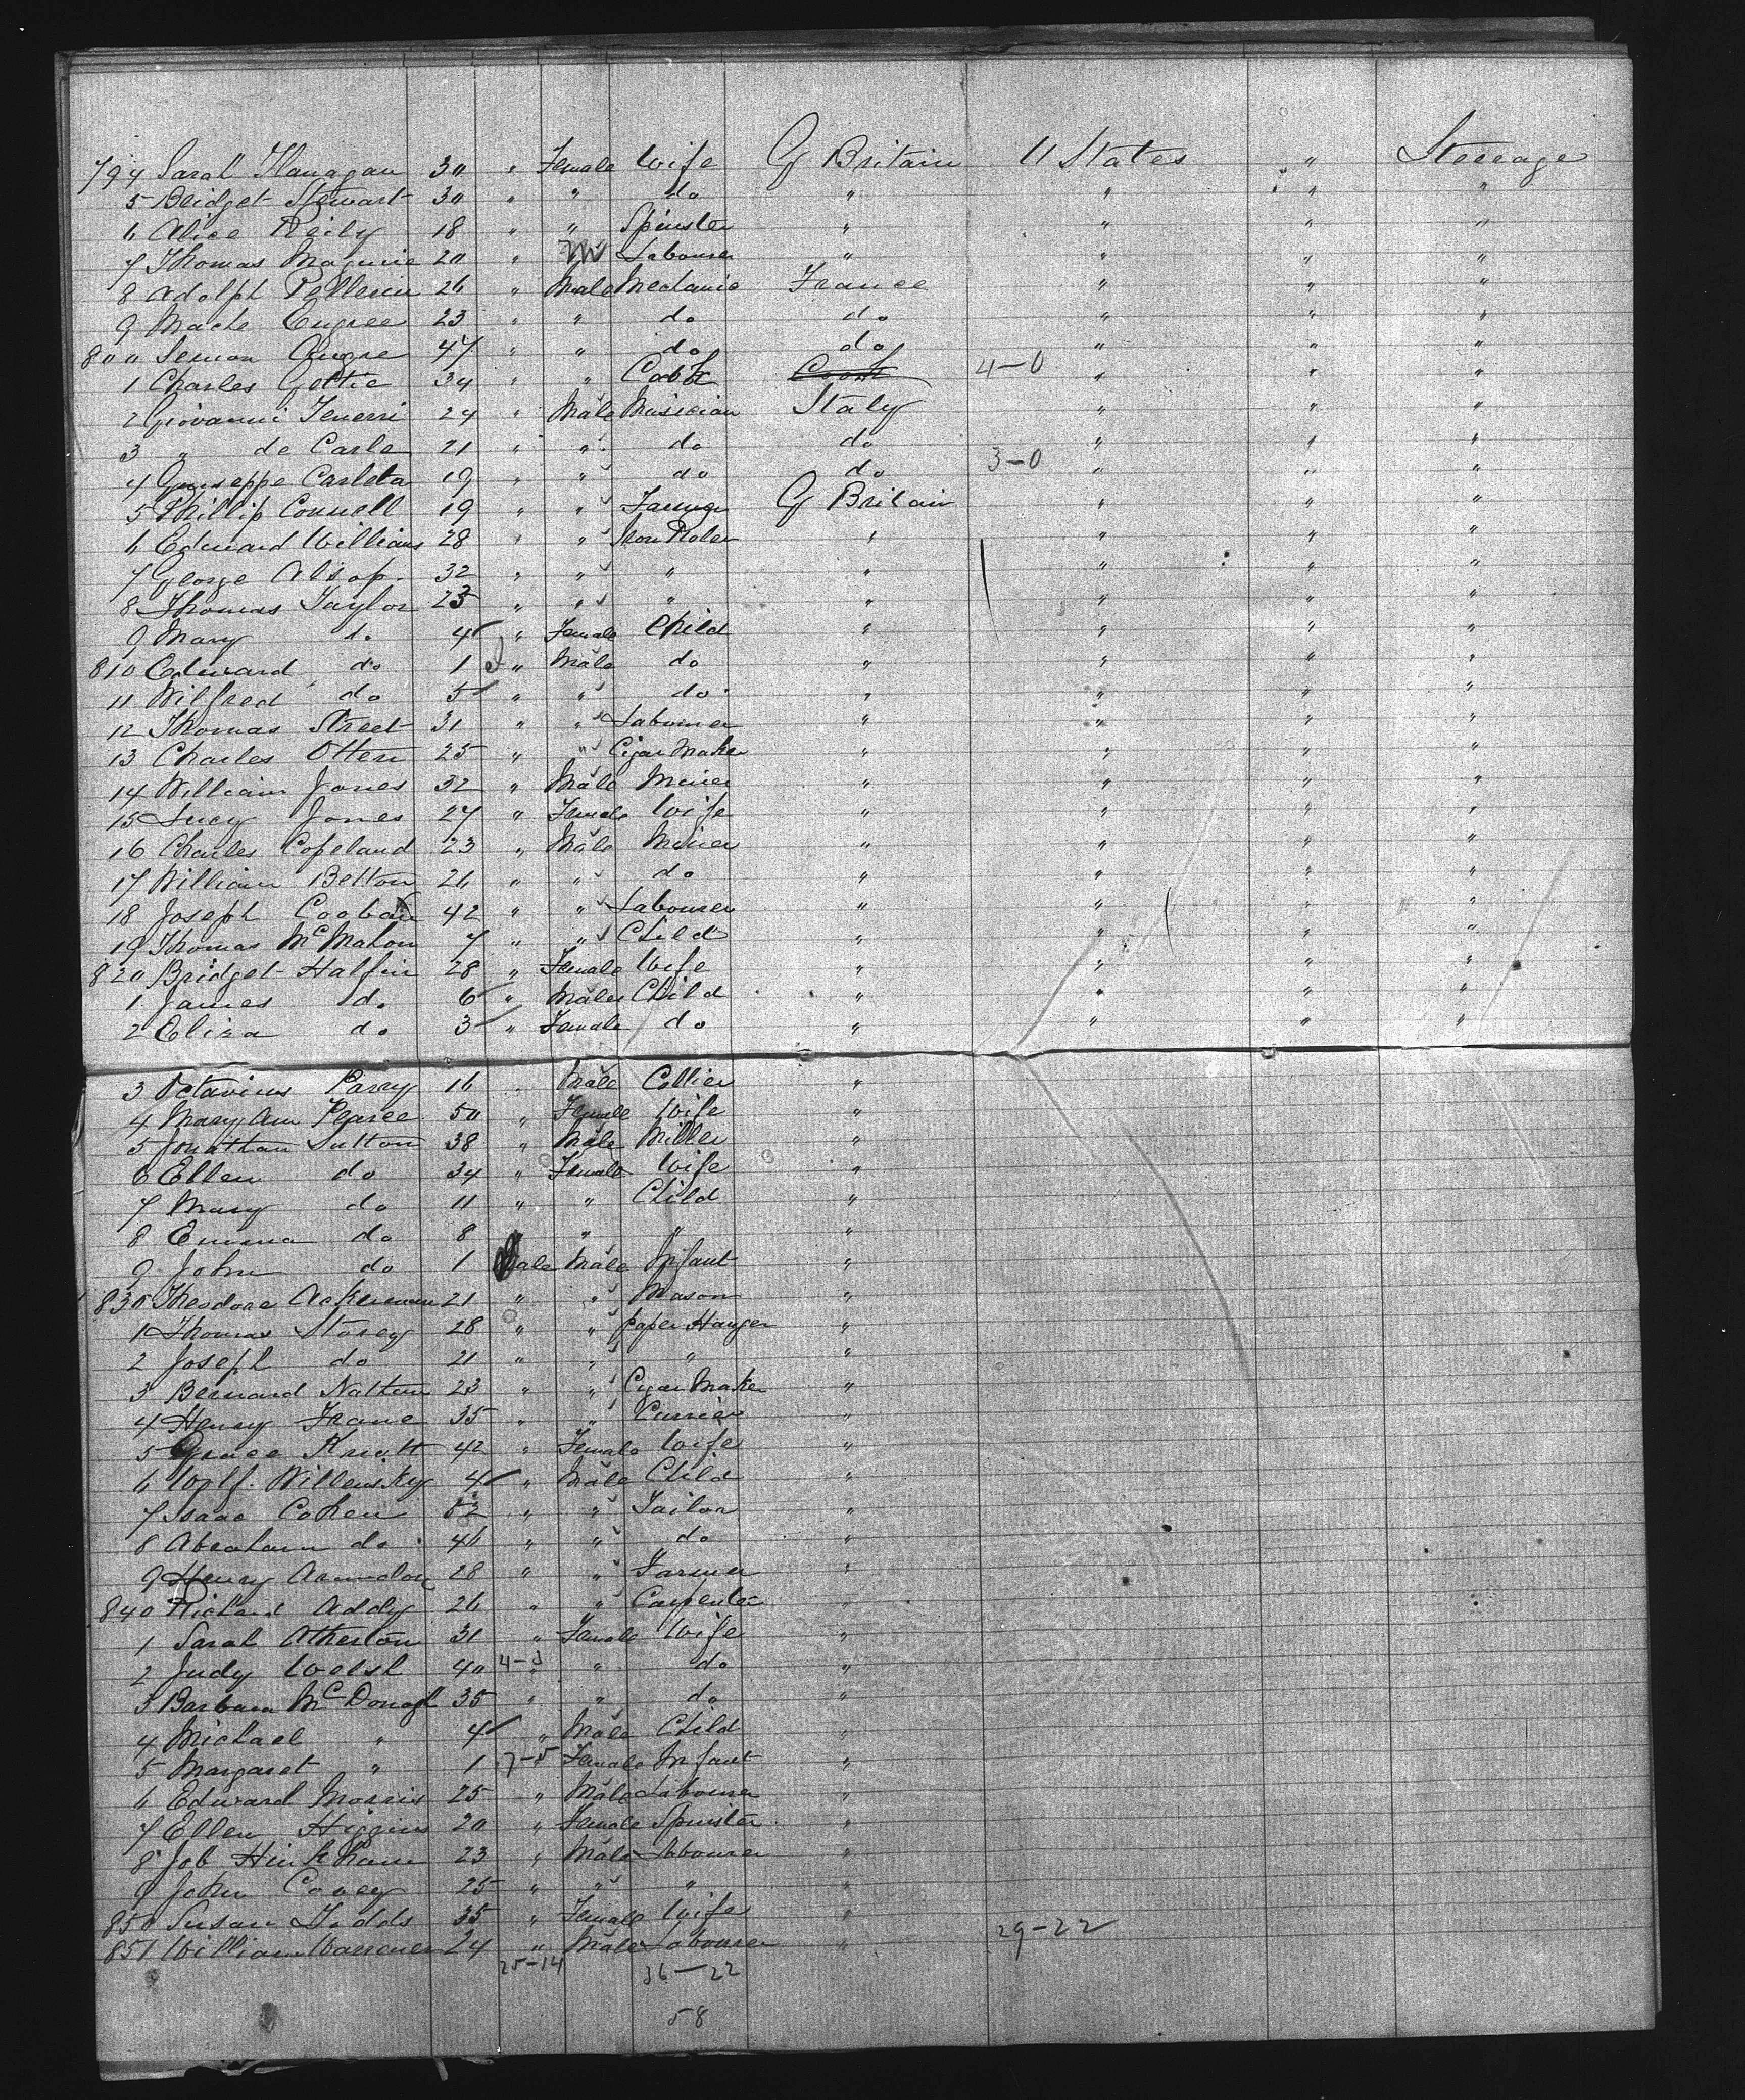 794 Sarah Flanagan 30 " Female Wife G Britain U States " Steerage
5 Bridget Stewart 30 " " do " " " "
6 Alice Reily 18 " " Spinster " " " "
7 Thomas Maguire 20 " M Labourer " " " "
8 Adolph Pellerin 26 " Male Mechanic France " " "
9 Mache Eugree 23 " " do do " " "
800 Semon Augre 47 " " do do " " "
1 Charles Gottie 34 " " Cook 4-0 " " "
2 Giovanni Tenerri 24 " Male Musician Italy " " "
3 " de Carle 21 " " do do " " "
4 Guiseppe Carleta 19 " " do do 3-0 " " "
5 Phillip Connell 19 " " Farmer G Britain " " "
6 Edward Williams 28 " " Iron Roler " " " "
7 George Alsop 32 " " " " " " "
8 Thomas Taylor 23 " " " " " " "
9 Mary do 4 " Female Child " " " "
810 Edward do 1 " Male do " " " "
11 Wilfred do 5 " " do " " " "
12 Thomas Street 31 " " Labourer " " " "
13 Charles Otten 25 " " Cigar Maker " " " "
14 William Jones 32 " Male Miner " " " "
15 Lucy Jones 27 " Female Wife " " " "
16 Charles Copeland 23 " Male Miner " " " "
17 William Betton 26 " " do " " " "
18 Joseph 42 " " Labourer " " " "
19 Thomas McMahon 7 " " Child " " " "
820 Bridget Halfin 28 " Female Wife " " " "
1 James do 6 " Male Child " " " "
2 Eliza do 3 " Female do " " " "
3 Octavius Parry 16 " Male Collier "
4 Mary Ann Pearce 50 " Female Wife "
5 Jonathan Sutton 38 " Male Miller "
6 Ellen do 34 " Female Wife "
7 Mary do 11 " " Child "
8 Emma do 8 " " " "
9 John do 1 Male Male Infant "
830 Theodore Ackerman 21 " " Mason "
1 Thomas Storey 28 " " Paper Hanger "
2 Joseph do 21 " " " "
3 Bernard Nathan 23 " " Cigar Maker "
4 Henry Frane 35 " " Currier "
5 Grace Knott 42 " Female Wife "
6 Wolf. Willensky 4 " Male Child "
7 Isaac Cohen 52 " " Tailor "
8 Abraham do 46 " " do "
9 Henry 28 " " Farmer "
840 Richard Addy 26 " " Carpenter "
1 Sarah Atherton 31 " Female Wife "
2 Judy Welsh 40 " " do "
3 Barbara McDonogh 35 " " do "
4 Michael " 4 " Male Child "
5 Margaret " 1 7-5 Female Infant "
6 Edward Morris 25 " Male Labourer "
7 Ellen Higgins 20 " Female Spinster "
8 Job Hinkham 23 " Male Labourer "
9 John Covey 25 " " " "
850 Susan Dodds 35 " Female Wife "
851 William Warrener 24 " Male Labourer " 29-22
25-14 36-22
58